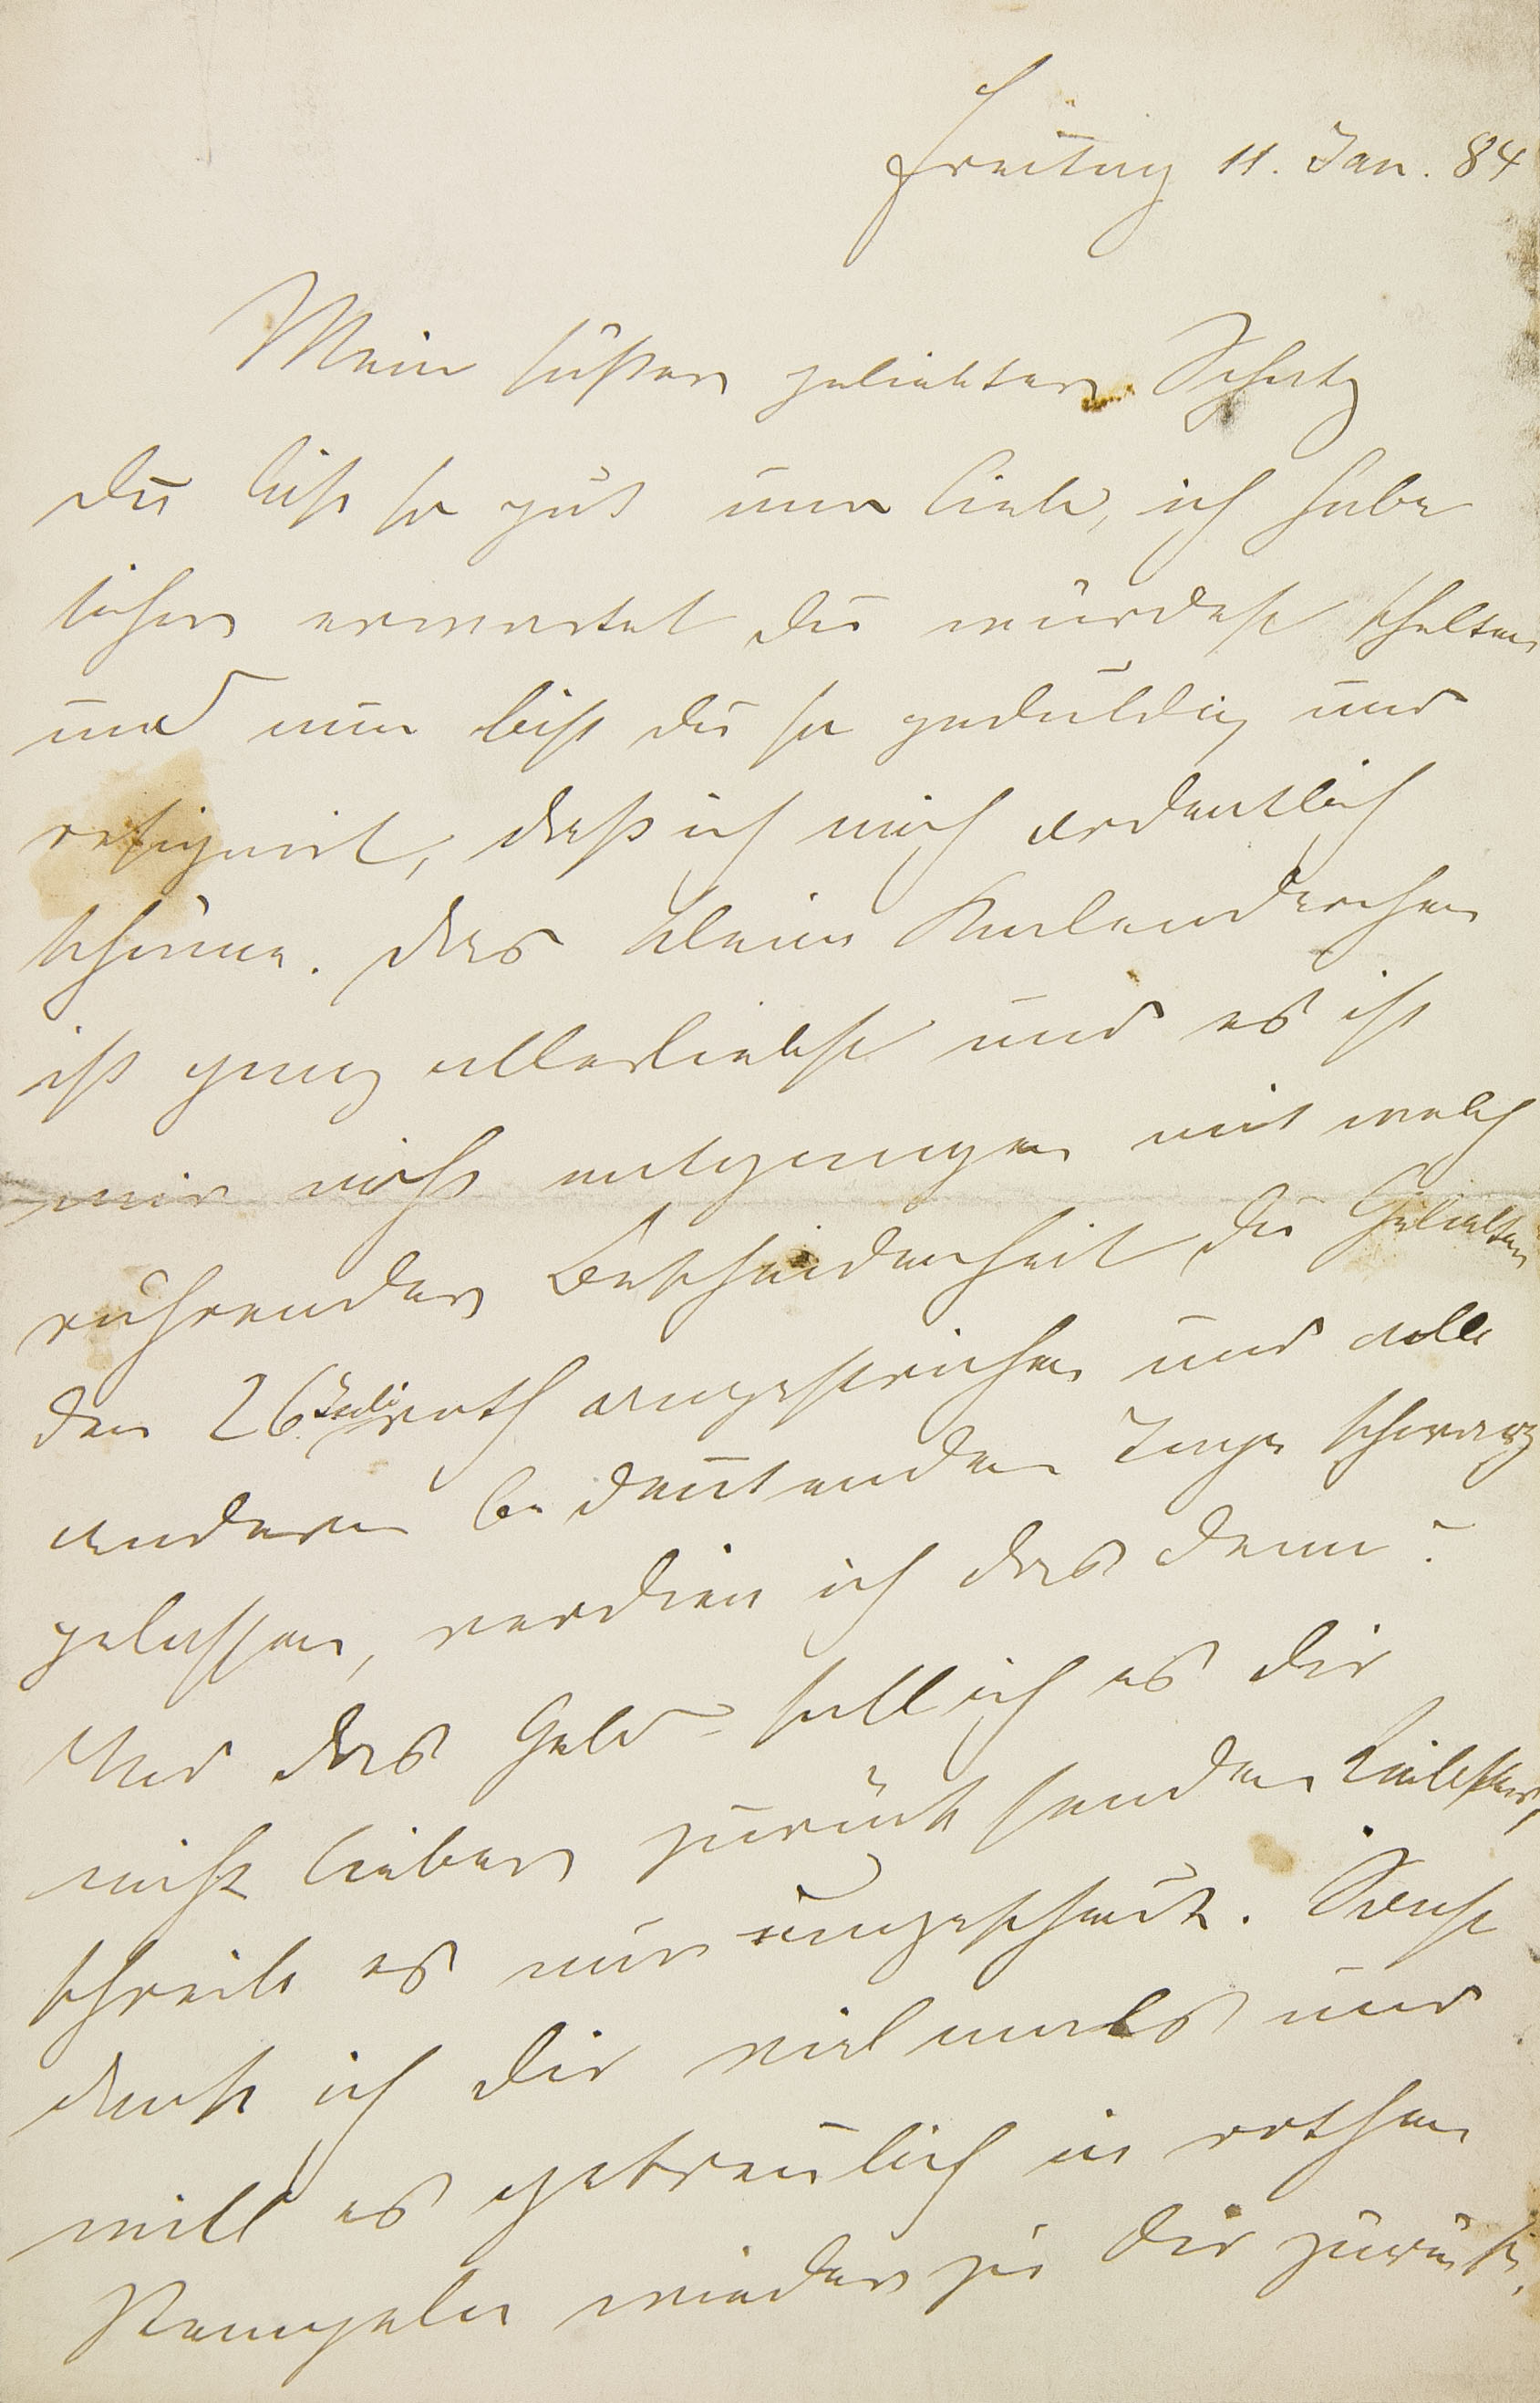 Freitag 11. Jan. 84
Mein süßer geliebter Schatz
Du bist so gut und lieb, ich habe
sicher erwartet Du würdest schelten
und nun bist Du so geduldig und
resignirt, daß ich mich ordentlich
schäme. Das kleine Kalenderchen
ist ganz allerliebst und es ist
mir nicht entgangen mit welch
rührender Bescheidenheit, Du Geliebter
den 26 Juli roth angestrichen und alle
anderen bedeutenden Tage schwarz
gelassen, verdien ich das denn?
Und das Geld – soll ich es Dir
nicht lieber zurück senden Liebster,
schreib es nur ungescheut. Sonst
dank ich Dir vielmals und
will es getreulich in rothen
Stempeln wieder zu Dir zurück